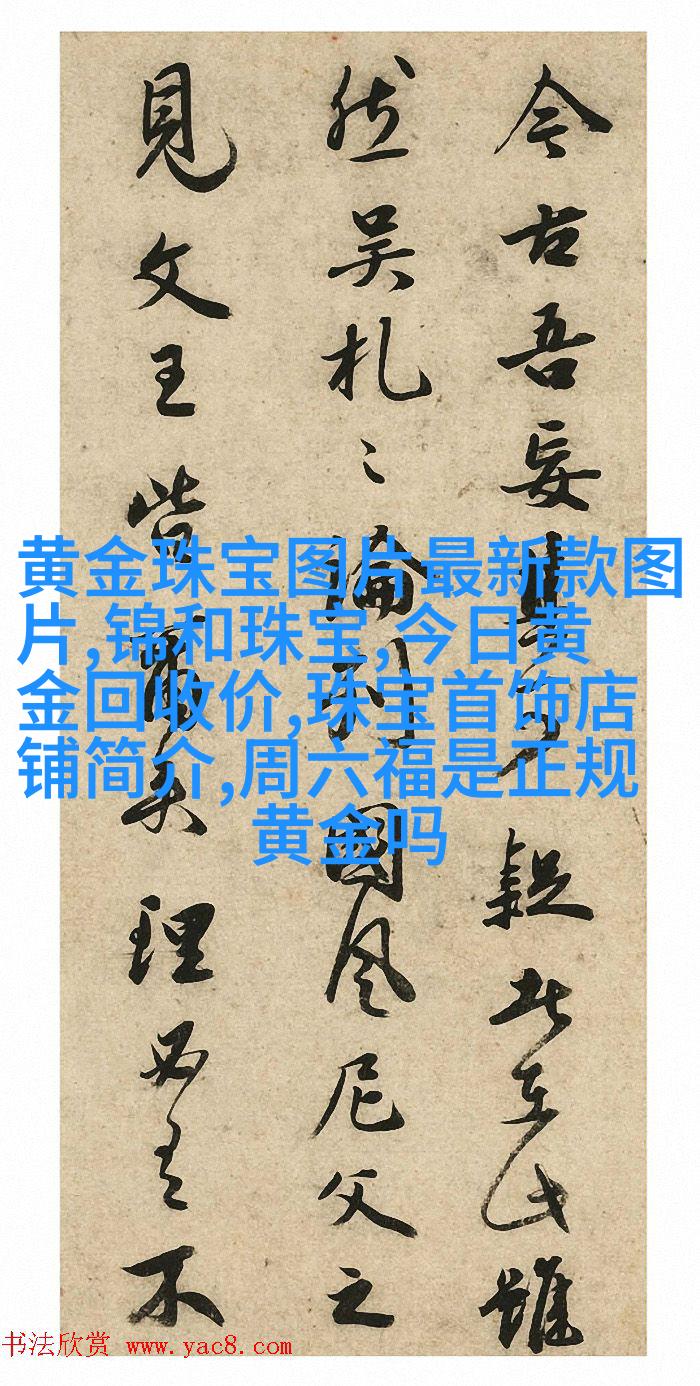 今古吾妄疑雖
然吴札〻論列國風尼父之
見文王皆爾夫理必有不
黄金珠宝图片最新款图
片,锦和珠宝,今日黄
金回收价,珠宝首饰店
铺简介,周六福是正规
黄金吗
书法欣赏 www.yac8.com